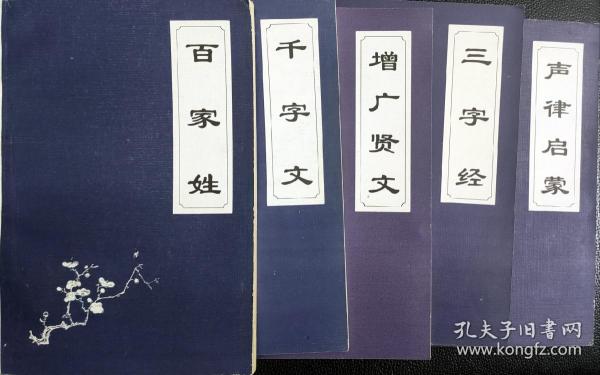 百家姓
千字文
增广贤文
三字经
声律启蒙
孔夫子旧书网
www.kongfz.com